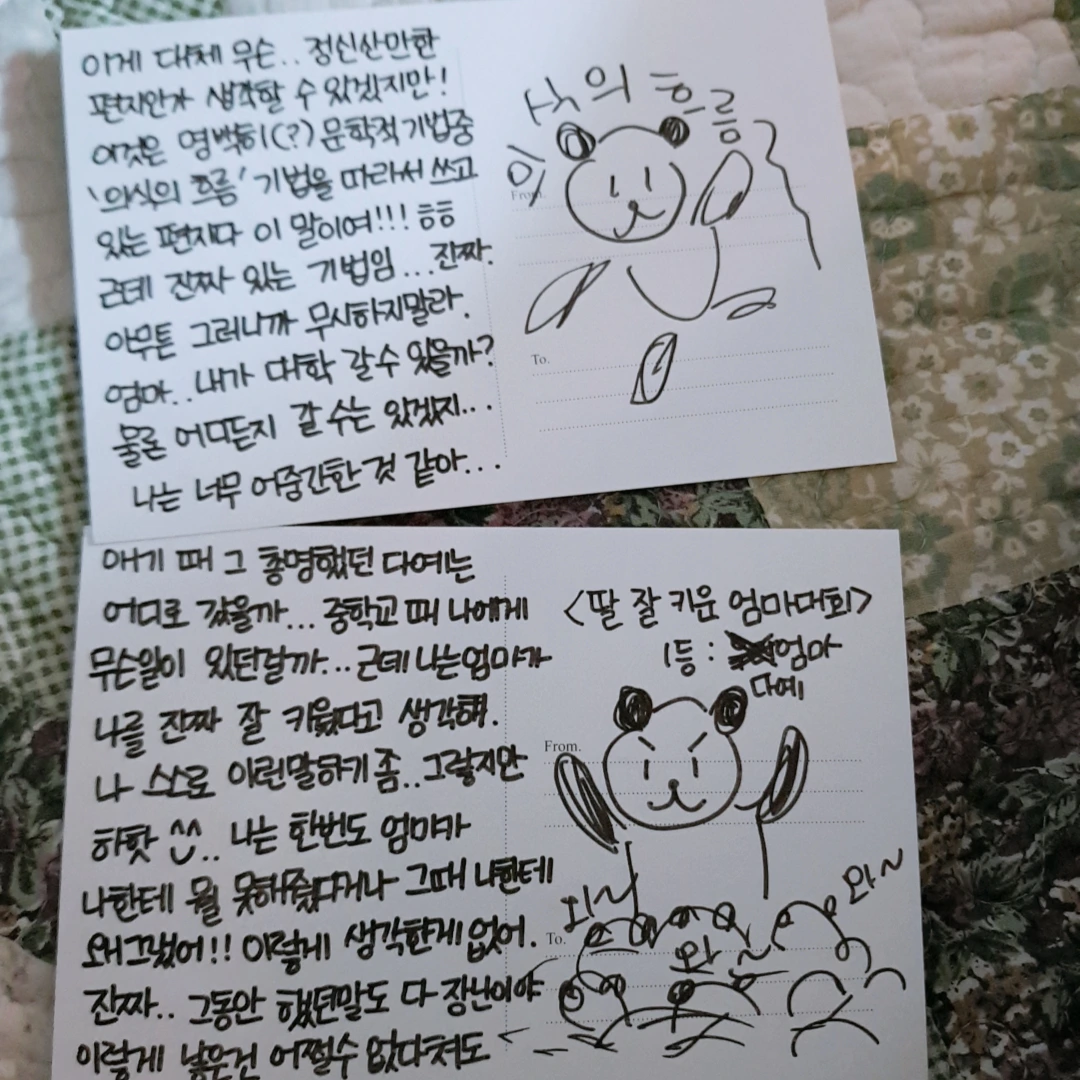 이게 대체 무슨.. 정신산만한
편지인가 생각할 수 있겠지만!
이것은 명백히(?) 문학적 기법중
'의식의 흐름' 기법을 따라서 쓰고
있는 편지다 이 말이여!!! ㅎㅎ
근데 진짜 있는 기법임...진짜.
아무튼 그러니까 무시하지말라.
엄마..내가 대학 갈수 있을까?
물론 어디든지 갈 수는 있겠지...
나는 너무 어중간한 것 같아...
의식의 흐름
From.
To.
애기 때 그 총명했던 다예는
어디로 갔을까... 중학교 때 나에게
무슨일이 있던걸까...근데 나는엄마가
나를 진짜 잘 키웠다고 생각해.
나 스스로 이런말하기 좀..그렇지만
하핫 ^^.. 나는 한번도 엄마가
나한테 뭘 못해줬다거나 그때 나한테
왜그랬어!! 이렇게 생각한게 없어.
진짜.. 그동안 했던말도 다 장난이야
이렇게 낳은건 어쩔수 없다쳐도
<딸 잘 키운 엄마대회>
1등: 엄마
다예
From.
To.
와~
와~